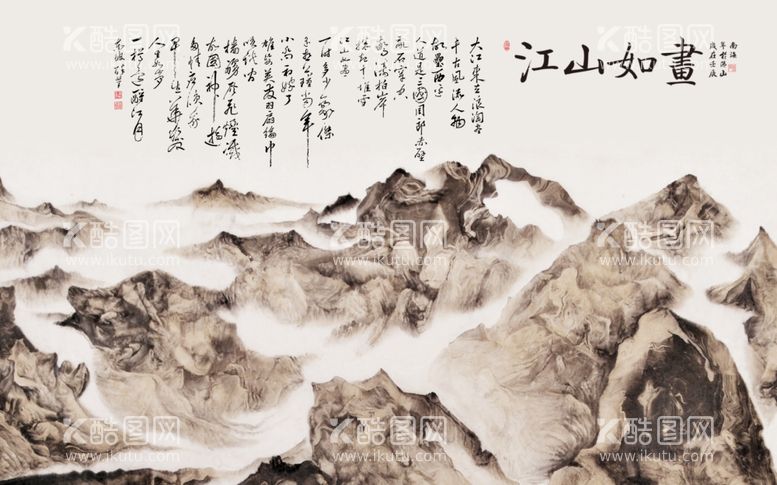 江山如畫
南海
大江東去浪淘盡
千古風流人物
故壘西邊
人道是三國周郎赤壁
亂石穿空
驚濤拍岸
捲起千堆雪
江山如畫
一時多少豪傑
遙想公瑾當年
小喬初嫁了
雄姿英發羽扇綸巾
談笑間
檣櫓灰飛煙滅
故國神遊
多情應笑我
早生華髮
人生如夢
一樽還酹江月
酷图网 酷图网 酷图网 酷图网 酷图网
www.ikutu.com www.ikutu.com www.ikutu.com www.ikutu.com www.ikutu.com
酷图网 酷图网 酷图网 酷图网 酷图网
www.ikutu.com www.ikutu.com www.ikutu.com www.ikutu.com www.ikutu.com